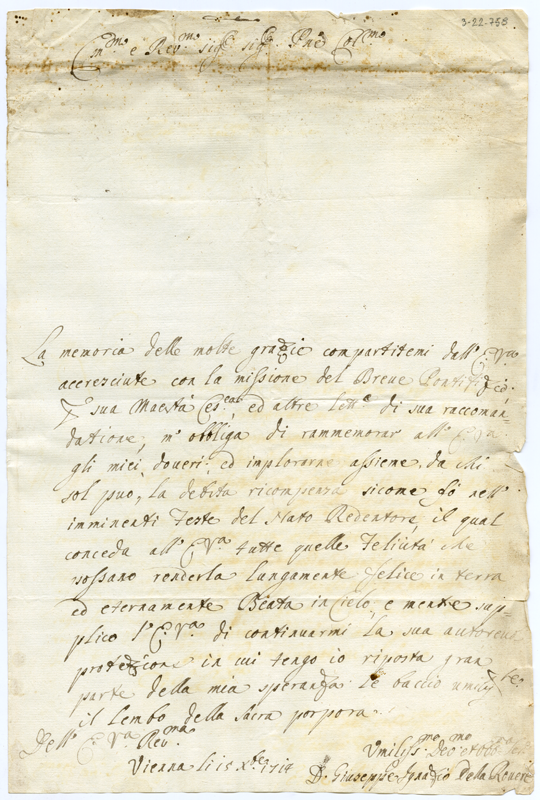 3-22-758
Em.mo e Rev.mo sig.r sig.r Pad. Col.mo
La memoria delle molte grazie compartitemi dall' E. V.ra
accresciute con la missione del Breve Pontifizio,
sua Maestà Ces.ea, ed altre lett.e di sua raccoman-
datione, m'obbliga di rammemorar all' E. V.ra
gli miei doveri, ed implorarne assieme da chi
sol puo, la debita ricompenza sicome fò nell'
imminenti Feste del Nato Redentore, il qual
conceda all' E. V.ra tutte quelle Felicità che
possano renderla lungamente felice in terra
ed eternamente Beata in Cielo, e mentre sup-
plico l' E. V.ra di continuarmi la sua autoreuo
protezione in cui tengo io riposta gran
parte della mia speranza le baccio umilm.te
il Lembo della sacra porpora.
Dell' E. V.ra Rev.ma
Vienna li 15 X.bre 1714
Umiliss.mo Dev.mo et Obb.mo
D. Giuseppe Ignazio Della Rovere